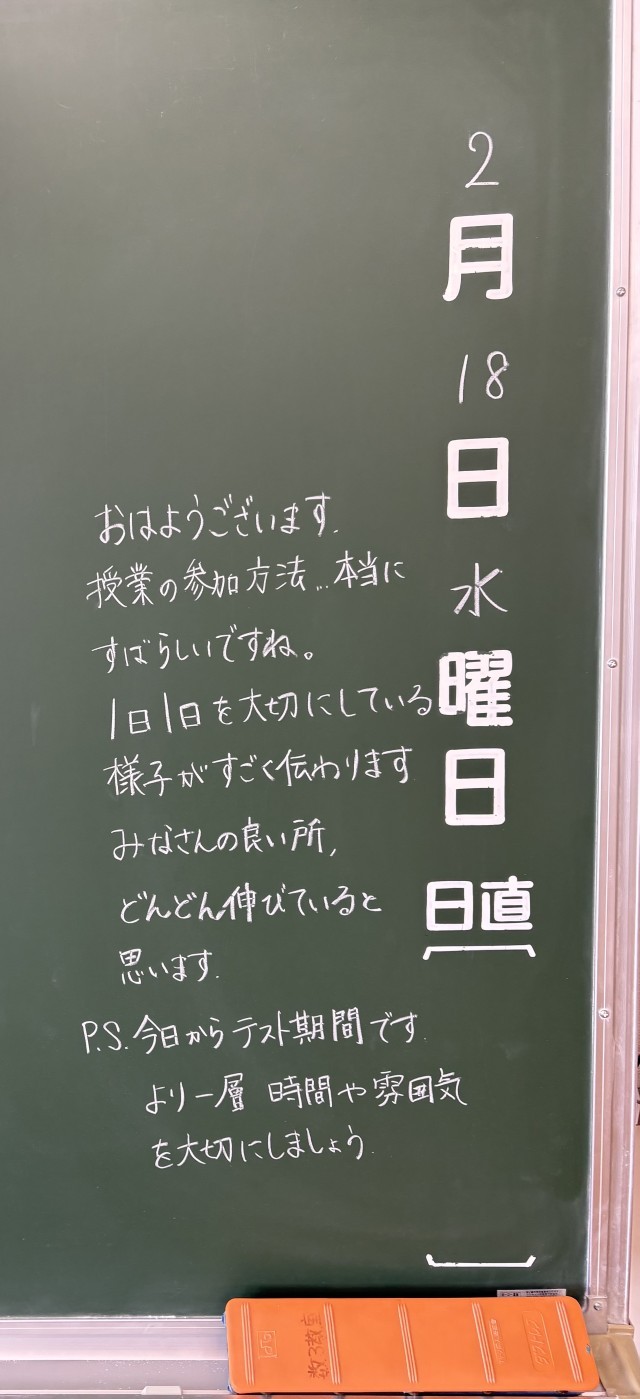 2
月
18
日
水
曜
日
日直
おはようございます.
授業の参加方法…本当に
すばらしいですね。
1日1日を大切にしている
様子がすごく伝わります
みなさんの良い所,
どんどん伸びていると
思います.
P.S.今日からテスト期間です.
より一層 時間や雰囲気
を大切にしましょう.
数3教室